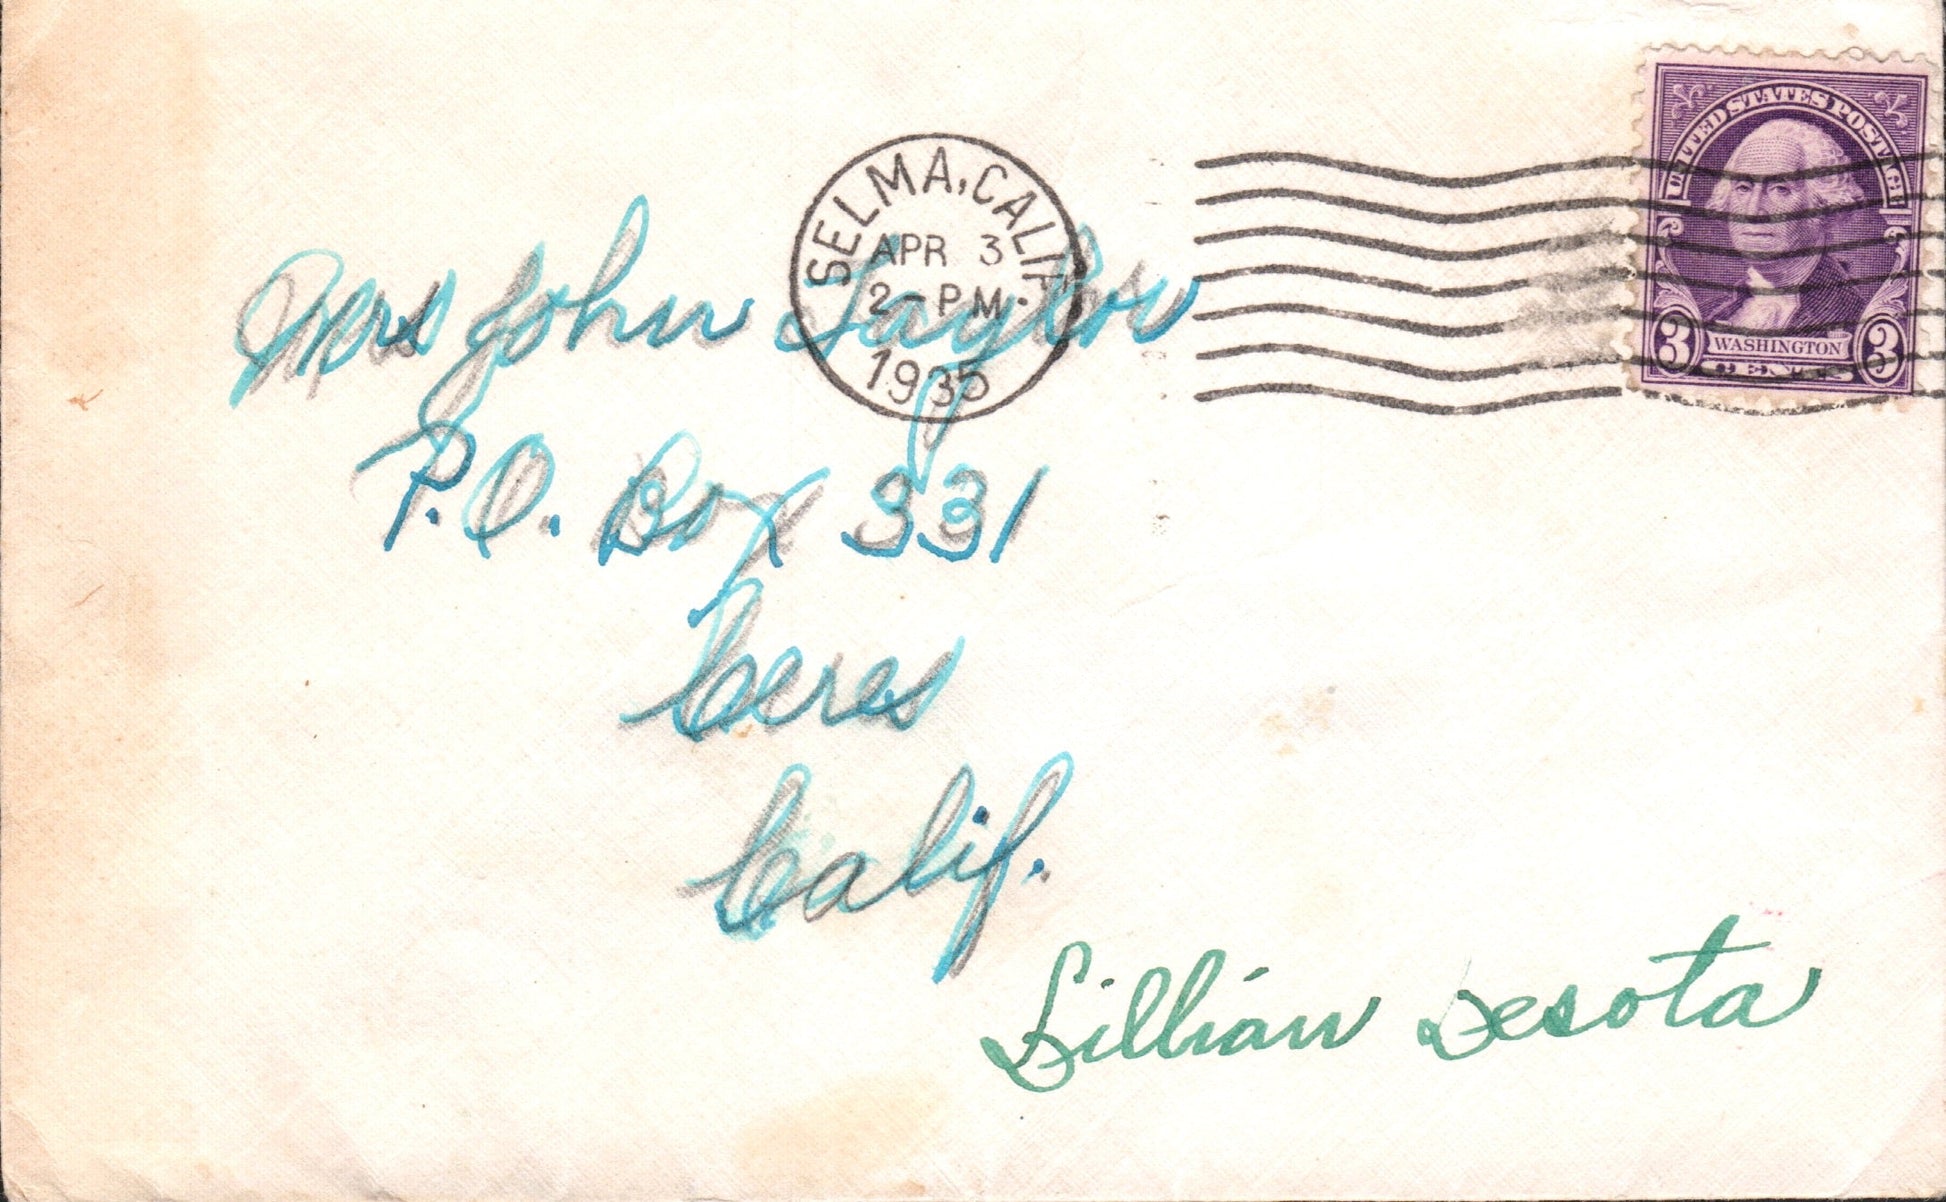 UNITED STATES POSTAGE
3 WASHINGTON 3
CENTS
SELMA, CALIF.
APR 3
2-PM.
1935
Mrs John Taylor
P.O. Box 331
Ceres
Calif.
Lillian Desota